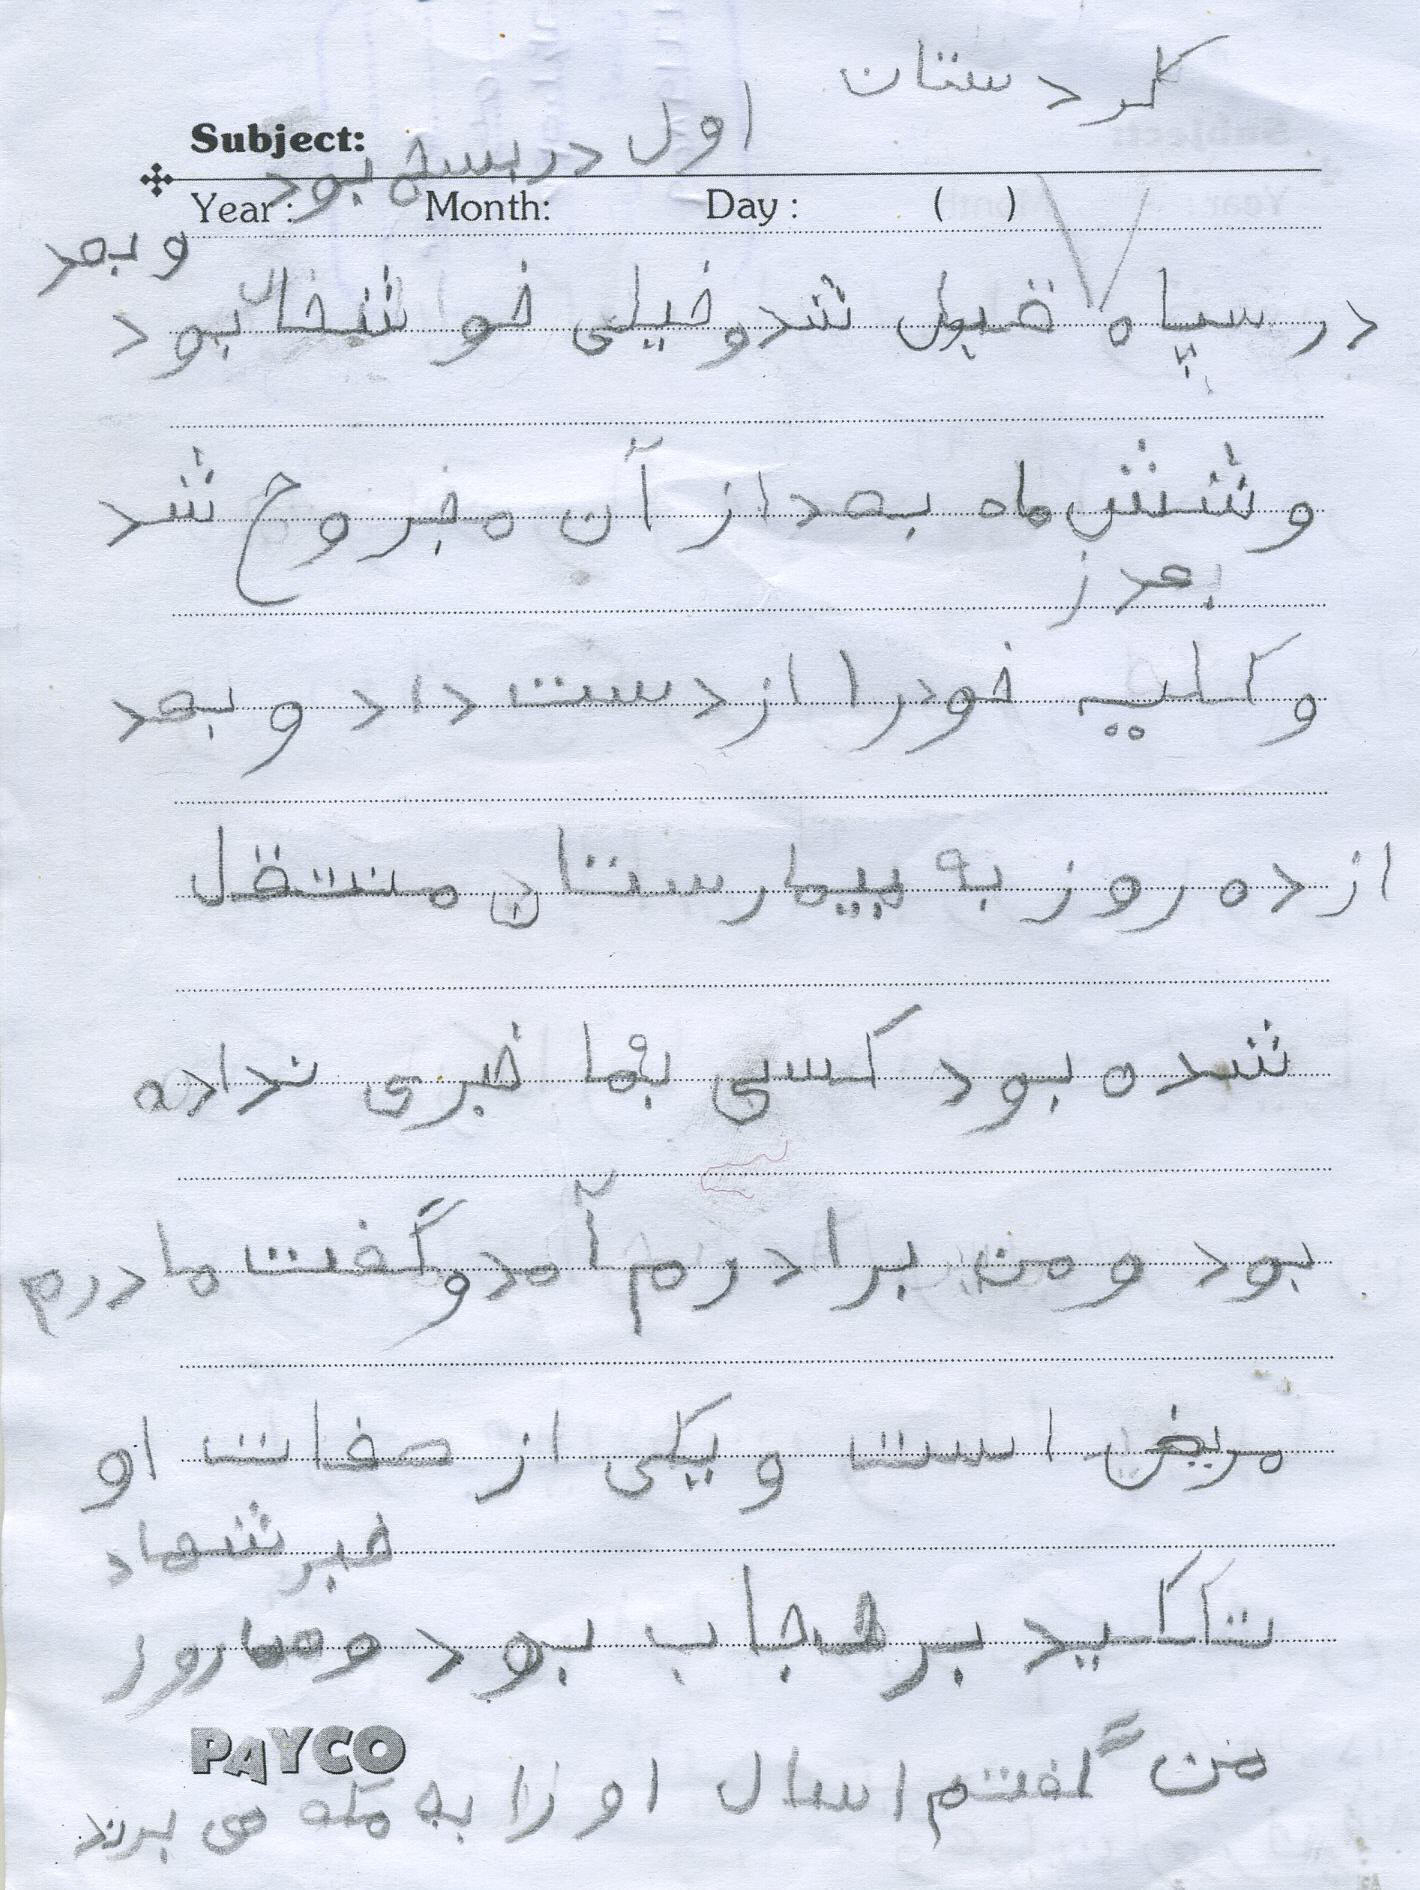 کردستان
Subject: اول در بسیج بود
Year: Month: Day: ( )
و بعد
در سپاه قبول شد و خیلی خوانشخال بود
و شش ماه بعد از آن مجروح شد
بعد ز
و کلیه خود را از دست داد و بعد
از ده روز به بیمارستان منتقل
شده بود کسی بما خبری نداده
بود و من برادرم آمد و گفت مادرم
مریض است و یکی از صفات او
خبر شهاد
تاکید بر حجاب بود و هما روز
من گفتم امسال او را به مکه می برند
PAYCO